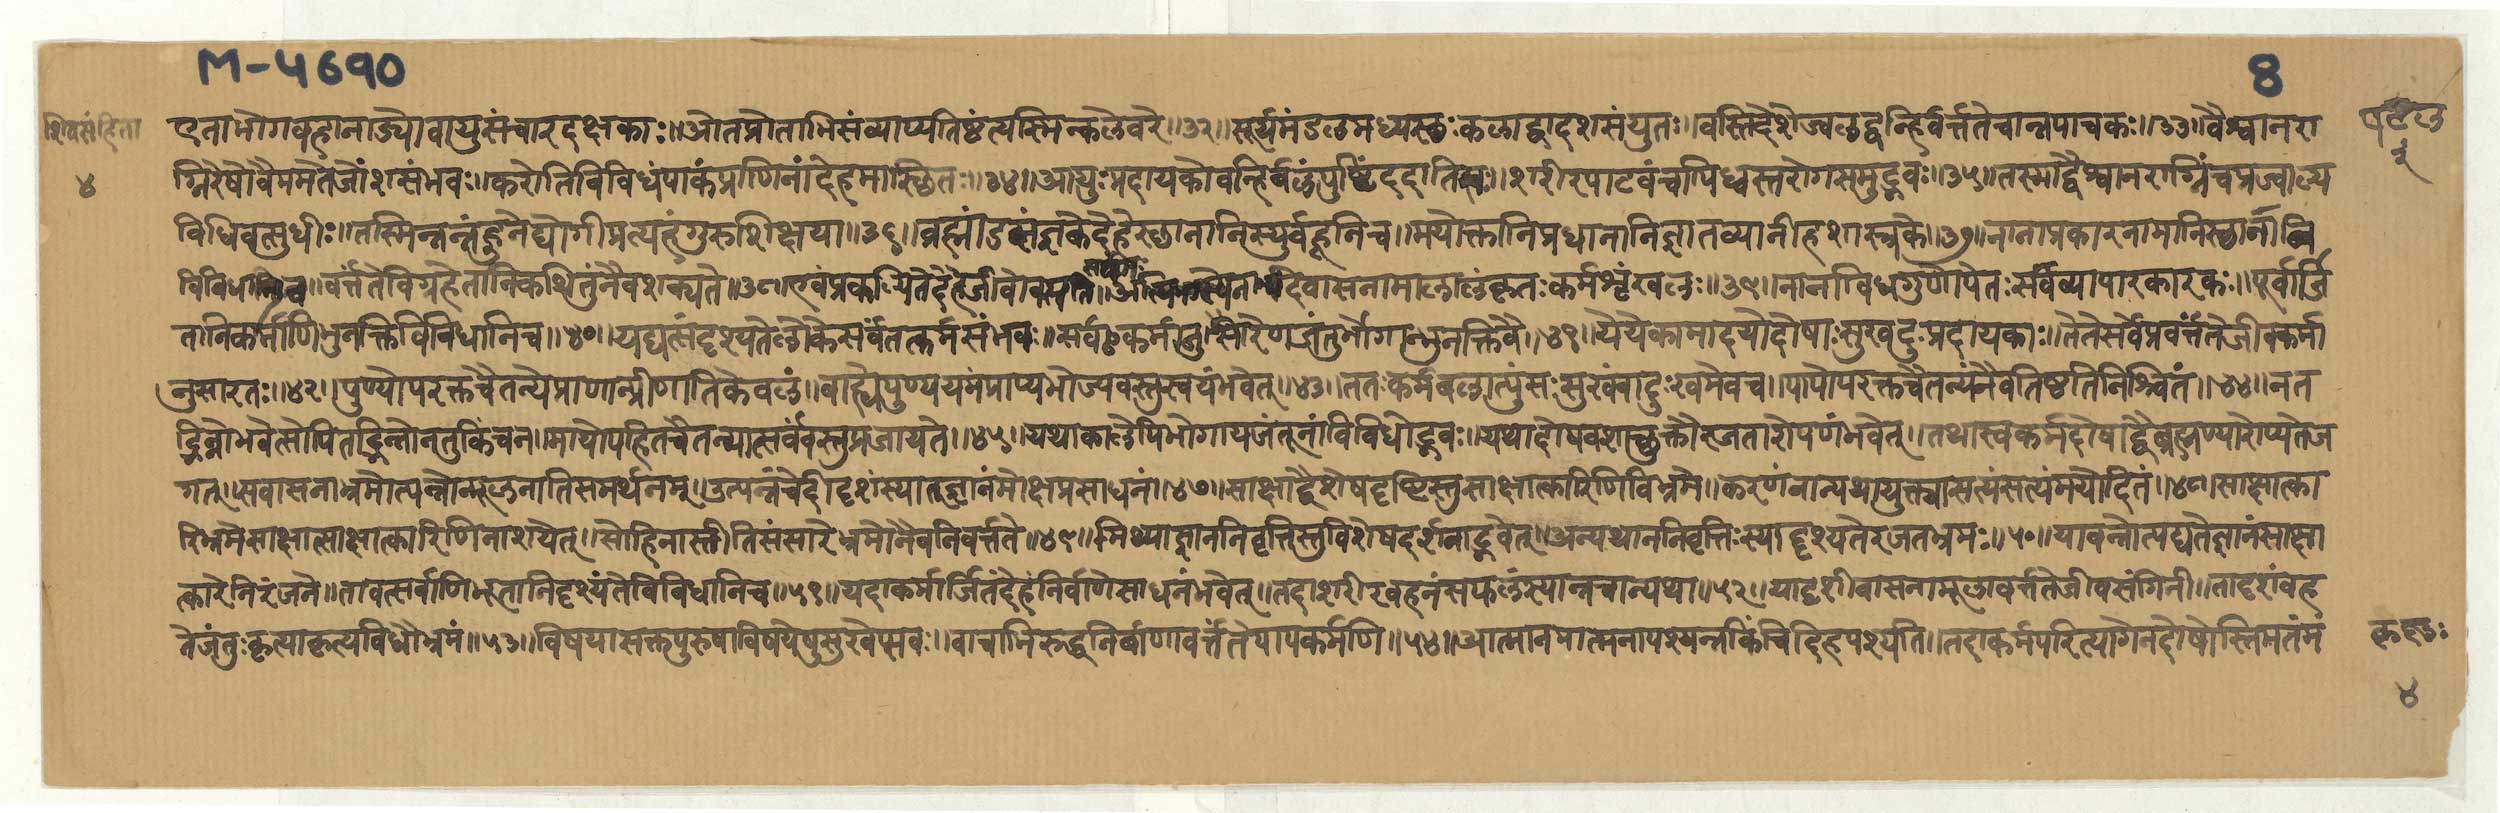 M-५६१०
8
शिवसंहिता
४
एताभोगवहानाड्योवायुसंचारदक्षकाः॥ओतप्रोताभिसंव्याप्यतिष्टंत्यस्मिन्कलेवरे॥३२॥सूर्यमंडलमध्यस्छःकलाद्वादशसंयुतः॥वस्तिदेशेज्वलद्वन्हिर्वर्त्ततेचान्नपाचकः॥३३॥वैश्वानरा
ग्निरेषोवैममतेजोंशसंभवः॥करोतिविविधंपाकंप्राणिनांदेहमास्छितः॥३४॥आयुःप्रदायकोवन्हिर्बलंपुष्टिंददातिसः॥शरीरपाटवंचापिध्वस्तरोगसमुद्भवः॥३५॥तस्माद्वैश्वानराग्निंचप्रज्वाल्य
विधिवत्सुधीः॥तस्मिन्नन्नंहुनेद्योगीप्रत्यहंगुरुशिक्षया॥३६॥ब्रह्मांडसंज्ञकेदेहेस्छानानिस्युर्बहूनिच॥मयोक्तानिप्रधानानिज्ञातव्यानीहशास्त्रके॥३७॥नानाप्रकारनामानिस्छानानि
विविधानिच॥वर्त्ततेविग्रहेतानिकथितुंनैवशक्यते॥३८॥एवंप्रकल्पितेदेहेजीवोवसति॥अनादिवासनामालालंकृतःकर्मशृंखलः॥३९॥नानाविधगुणोपेतःसर्वव्यापारकारकः॥पूर्वार्जि
तानिकर्माणिभुनक्तिविविधानिच॥४०॥यद्यत्संदृश्यतेलोकेसर्वंतत्कर्मसंभवं॥सर्वःकर्मानुसारेणजंतुर्भोगान्भुनक्तिवै॥४१॥येयेकामादयोदोषाःसुखदुःप्रदायकाः॥तेतेसर्वेप्रवर्त्ततेजीवकर्मा
नुसारतः॥४२॥पुण्योपरक्तचैतन्येप्राणान्प्रीणातिकेवलं॥बाह्येपुण्ययमंप्राप्यभोज्यवस्तुस्वयंभवेत्॥४३॥ततःकर्मबलात्पुंसःसुखंवादुःखमेवच॥पापोपरक्तचैतन्यंनैवतिष्ठतिनिश्चितं॥४४॥नत
द्भिन्नोभवेत्सोपितद्भिन्नोनतुकिंचन॥मायोपहितचैतन्यात्सर्वंवस्तुप्रजायते॥४५॥यथाकालेपिभोगायजंतूनांविविधोद्भवः॥यथादोषवशाच्छुक्तौरजतारोपणंभवेत्॥तथास्वकर्मदोषाद्वैब्रह्मण्यारोप्यतेज
गत्॥सवासनाभ्रमोत्पन्नोन्मूलनातिसमर्थनम्॥उत्पन्नंचेदीदृशंस्यातज्ञानंमोक्षप्रसाधनं॥४७॥साक्षाद्वैशेषदृष्टिस्तुसाक्षात्कारिणिविभ्रमे॥करणंनान्यथायुक्त्यासत्यंसत्यंमयोदितं॥४८॥साक्षात्का
रिभ्रमेसाक्षात्साक्षात्कारिणिनाशयेत्॥सोहिनास्तीतिसंसारेभ्रमोनैवनिवर्त्तते॥४९॥मिथ्याज्ञाननिवृत्तिस्तुविशेषदर्शनाद्भवेत्॥अन्यथाननिवृत्तिःस्याद्दृश्यतेरजतभ्रमः॥५०॥यावन्नोत्पद्यतेज्ञानंसाक्षा
त्कारेनिरंजने॥तावत्सर्वाणिभूतानिदृश्यंतेविविधानिच॥५१॥यदाकर्मार्जितंदेहंनिर्वाणेसाधनंभवेत्॥तदाशरीरवहनंसफलंस्यान्नचान्यथा॥५२॥यादृशीवासनामूलावर्त्ततेजीवसंगिनी॥तादृशंवह
तेजंतुःकृत्याकृत्यविधौभ्रमं॥५३॥विषयासक्तपुरुषाविषयेषुसुखेप्सवः॥वाचाभिरुद्धनिर्वाणावर्त्ततेपापकर्मणि॥५४॥आत्मानमात्मनापश्यन्नकिंचिदिहपश्यति॥तदाकर्मपरित्यागेनदोषोस्तिमतंमं
४